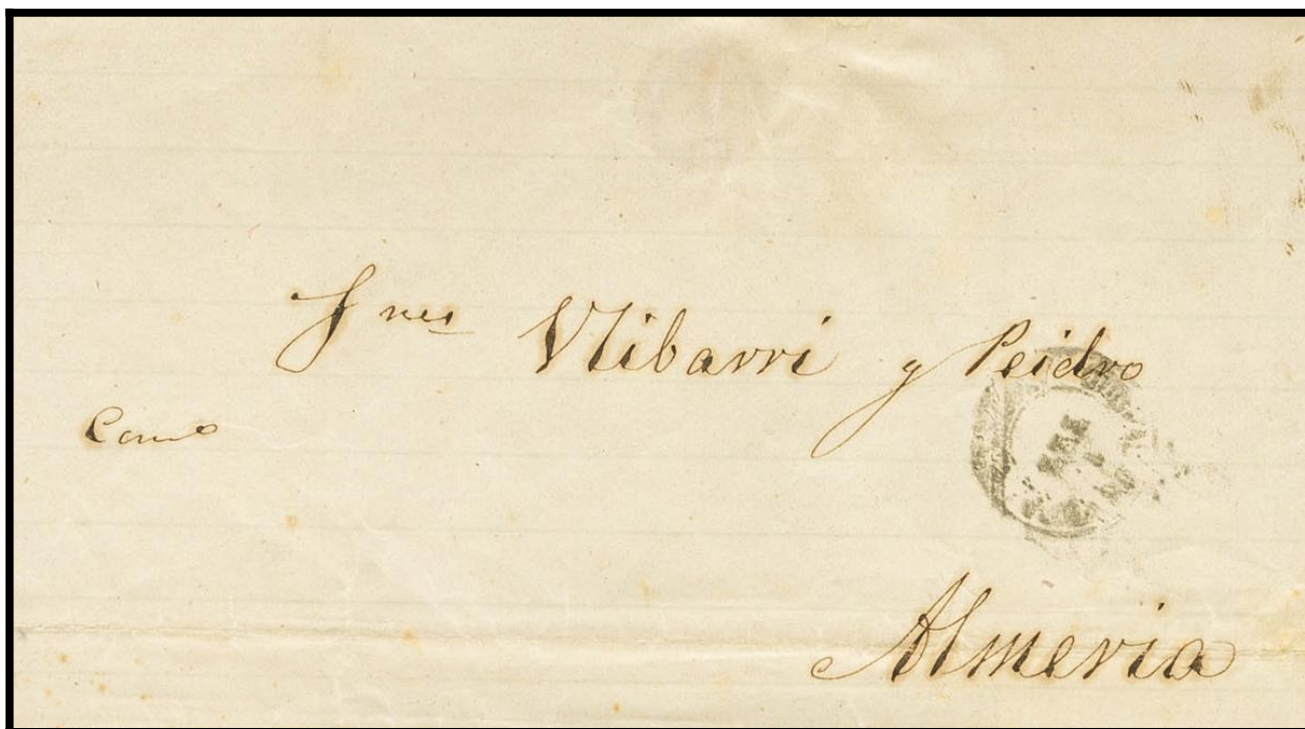 Sres Ulibarri y Peidro
Almeria